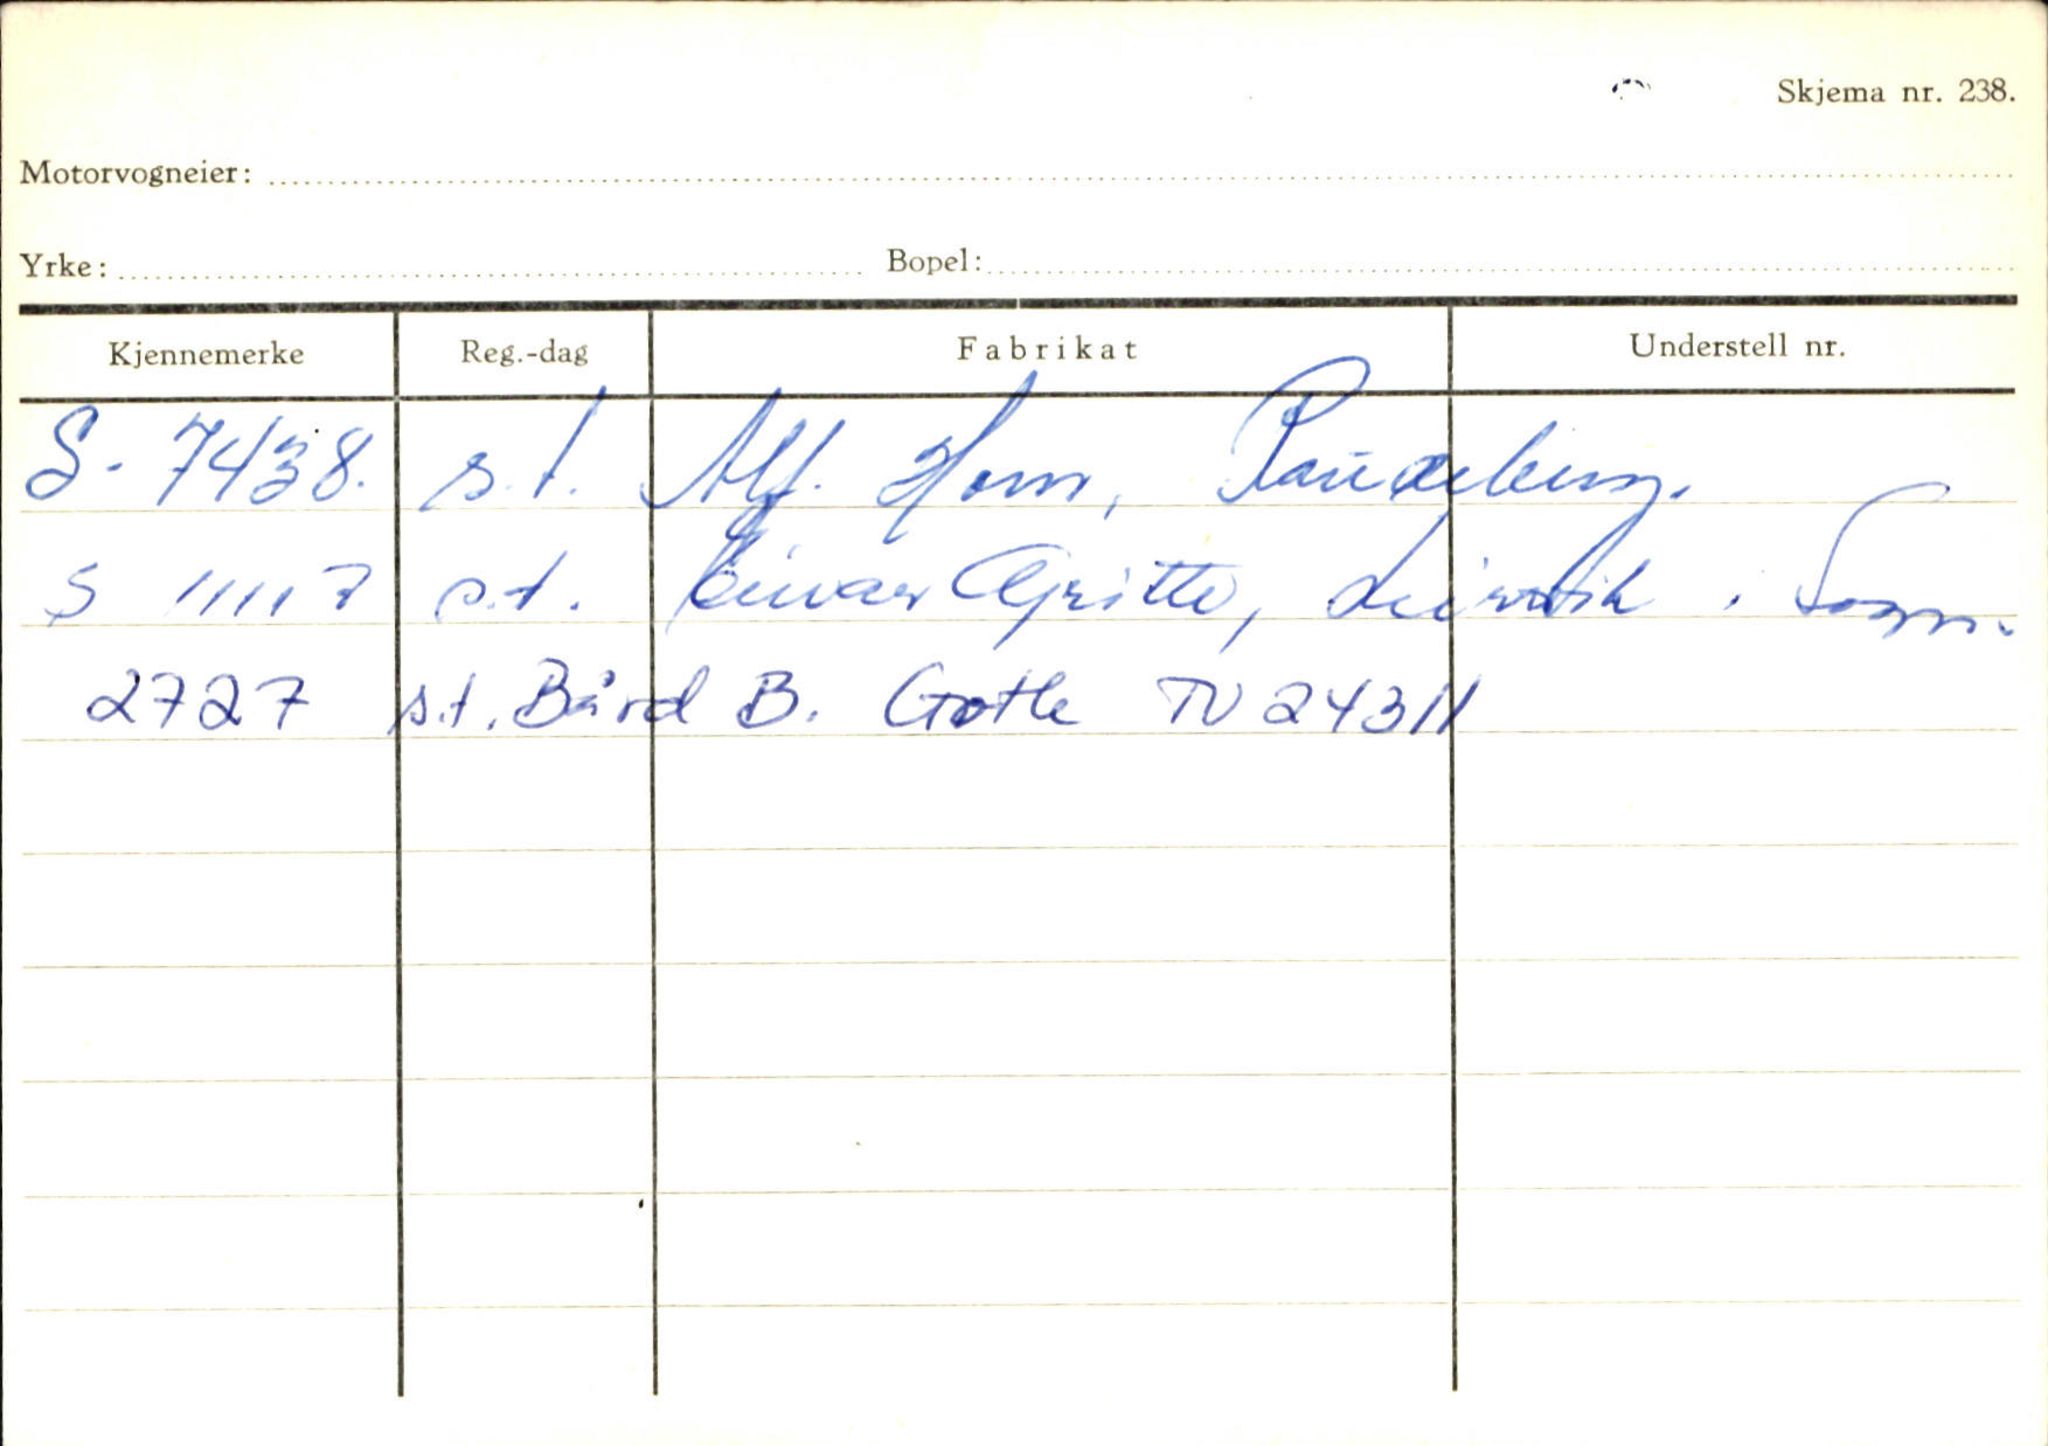 Skjema nr. 238.
Motorvogneier:
Yrke: Bopel:
Kjennemerke Reg.-dag Fabrikat Understell nr.
S- 7438. s.t. Alf. Horn, Raudeberg.
S 11117 s.t. Eivar Gritte, Leirvik i Sogn.
2727 s.t. Bård B. Gotle TV 24311